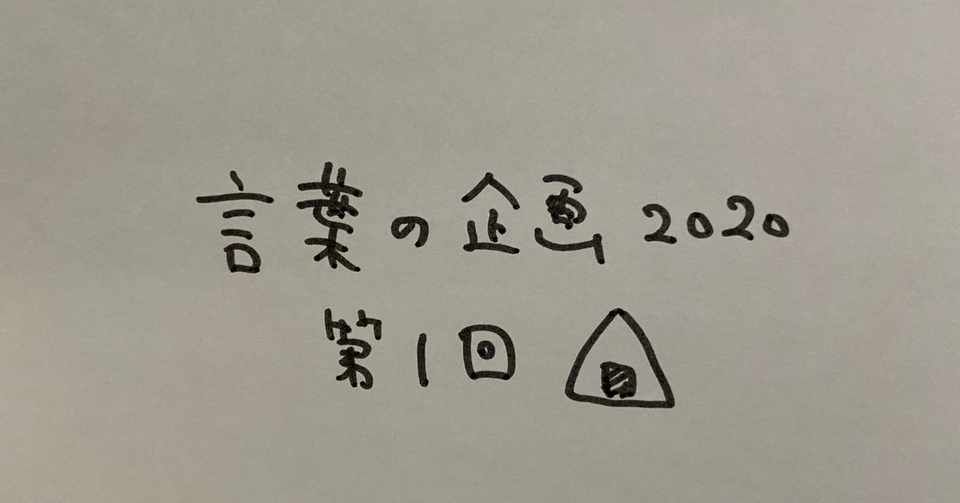 言葉の企画2020
第1回